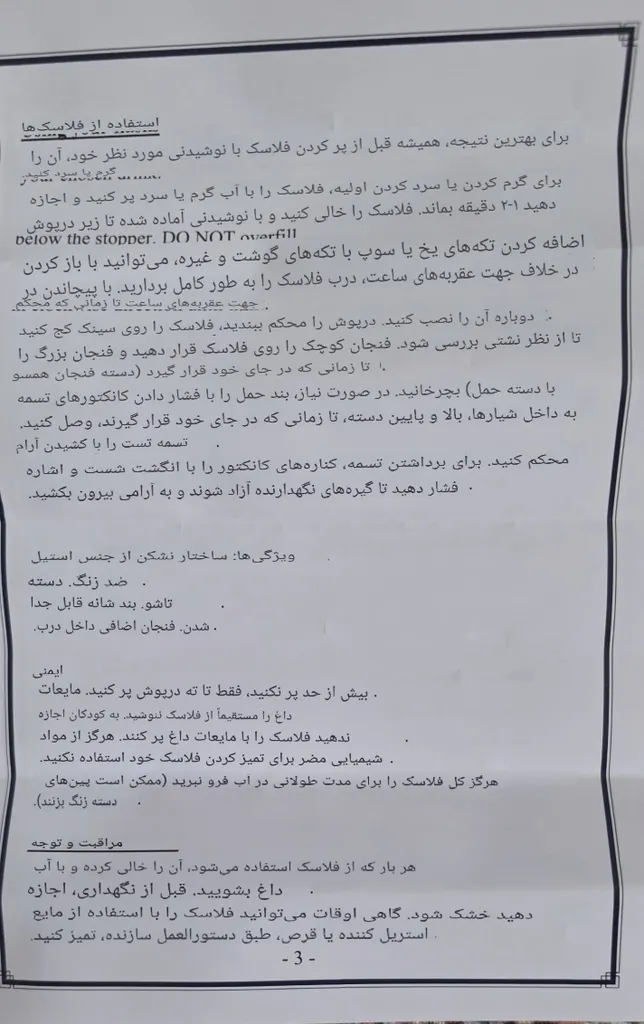 استفاده از فلاسک‌ها
برای بهترین نتیجه، همیشه قبل از پر کردن فلاسک با نوشیدنی مورد نظر خود، آن را
گرم یا سرد کنید.
برای گرم کردن یا سرد کردن اولیه، فلاسک را با آب گرم یا سرد پر کنید و اجازه
دهید ۱-۲ دقیقه بماند. فلاسک را خالی کنید و با نوشیدنی آماده شده تا زیر درپوش
below the stopper. DO NOT overfill
اضافه کردن تکه‌های یخ یا سوپ با تکه‌های گوشت و غیره، می‌توانید با باز کردن
در خلاف جهت عقربه‌های ساعت، درب فلاسک را به طور کامل بردارید. با پیچاندن در
جهت عقربه‌های ساعت تا زمانی که محکم
دوباره آن را نصب کنید. درپوش را محکم ببندید، فلاسک را روی سینک کج کنید
تا از نظر نشتی بررسی شود. فنجان کوچک را روی فلاسک قرار دهید و فنجان بزرگ را
تا زمانی که در جای خود قرار گیرد (دسته فنجان همسو
با دسته حمل) بچرخانید. در صورت نیاز، بند حمل را با فشار دادن کانکتورهای تسمه
به داخل شیارها، بالا و پایین دسته، تا زمانی که در جای خود قرار گیرند، وصل کنید.
تسمه تست را با کشیدن آرام
محکم کنید. برای برداشتن تسمه، کناره‌های کانکتور را با انگشت شست و اشاره
فشار دهید تا گیره‌های نگهدارنده آزاد شوند و به آرامی بیرون بکشید.
ویژگی‌ها: ساختار نشکن از جنس استیل
ضد زنگ. دسته
تاشو. بند شانه قابل جدا
شدن. فنجان اضافی داخل درب.
ایمنی
بیش از حد پر نکنید، فقط تا ته درپوش پر کنید. مایعات
داغ را مستقیماً از فلاسک ننوشید. به کودکان اجازه
ندهید فلاسک را با مایعات داغ پر کنند. هرگز از مواد
شیمیایی مضر برای تمیز کردن فلاسک خود استفاده نکنید.
هرگز کل فلاسک را برای مدت طولانی در آب فرو نبرید (ممکن است پین‌های
دسته زنگ بزنند).
مراقبت و توجه
هر بار که از فلاسک استفاده می‌شود، آن را خالی کرده و با آب
داغ بشویید. قبل از نگهداری، اجازه
دهید خشک شود. گاهی اوقات می‌توانید فلاسک را با استفاده از مایع
استریل کننده یا قرص، طبق دستورالعمل سازنده، تمیز کنید.
- 3 -